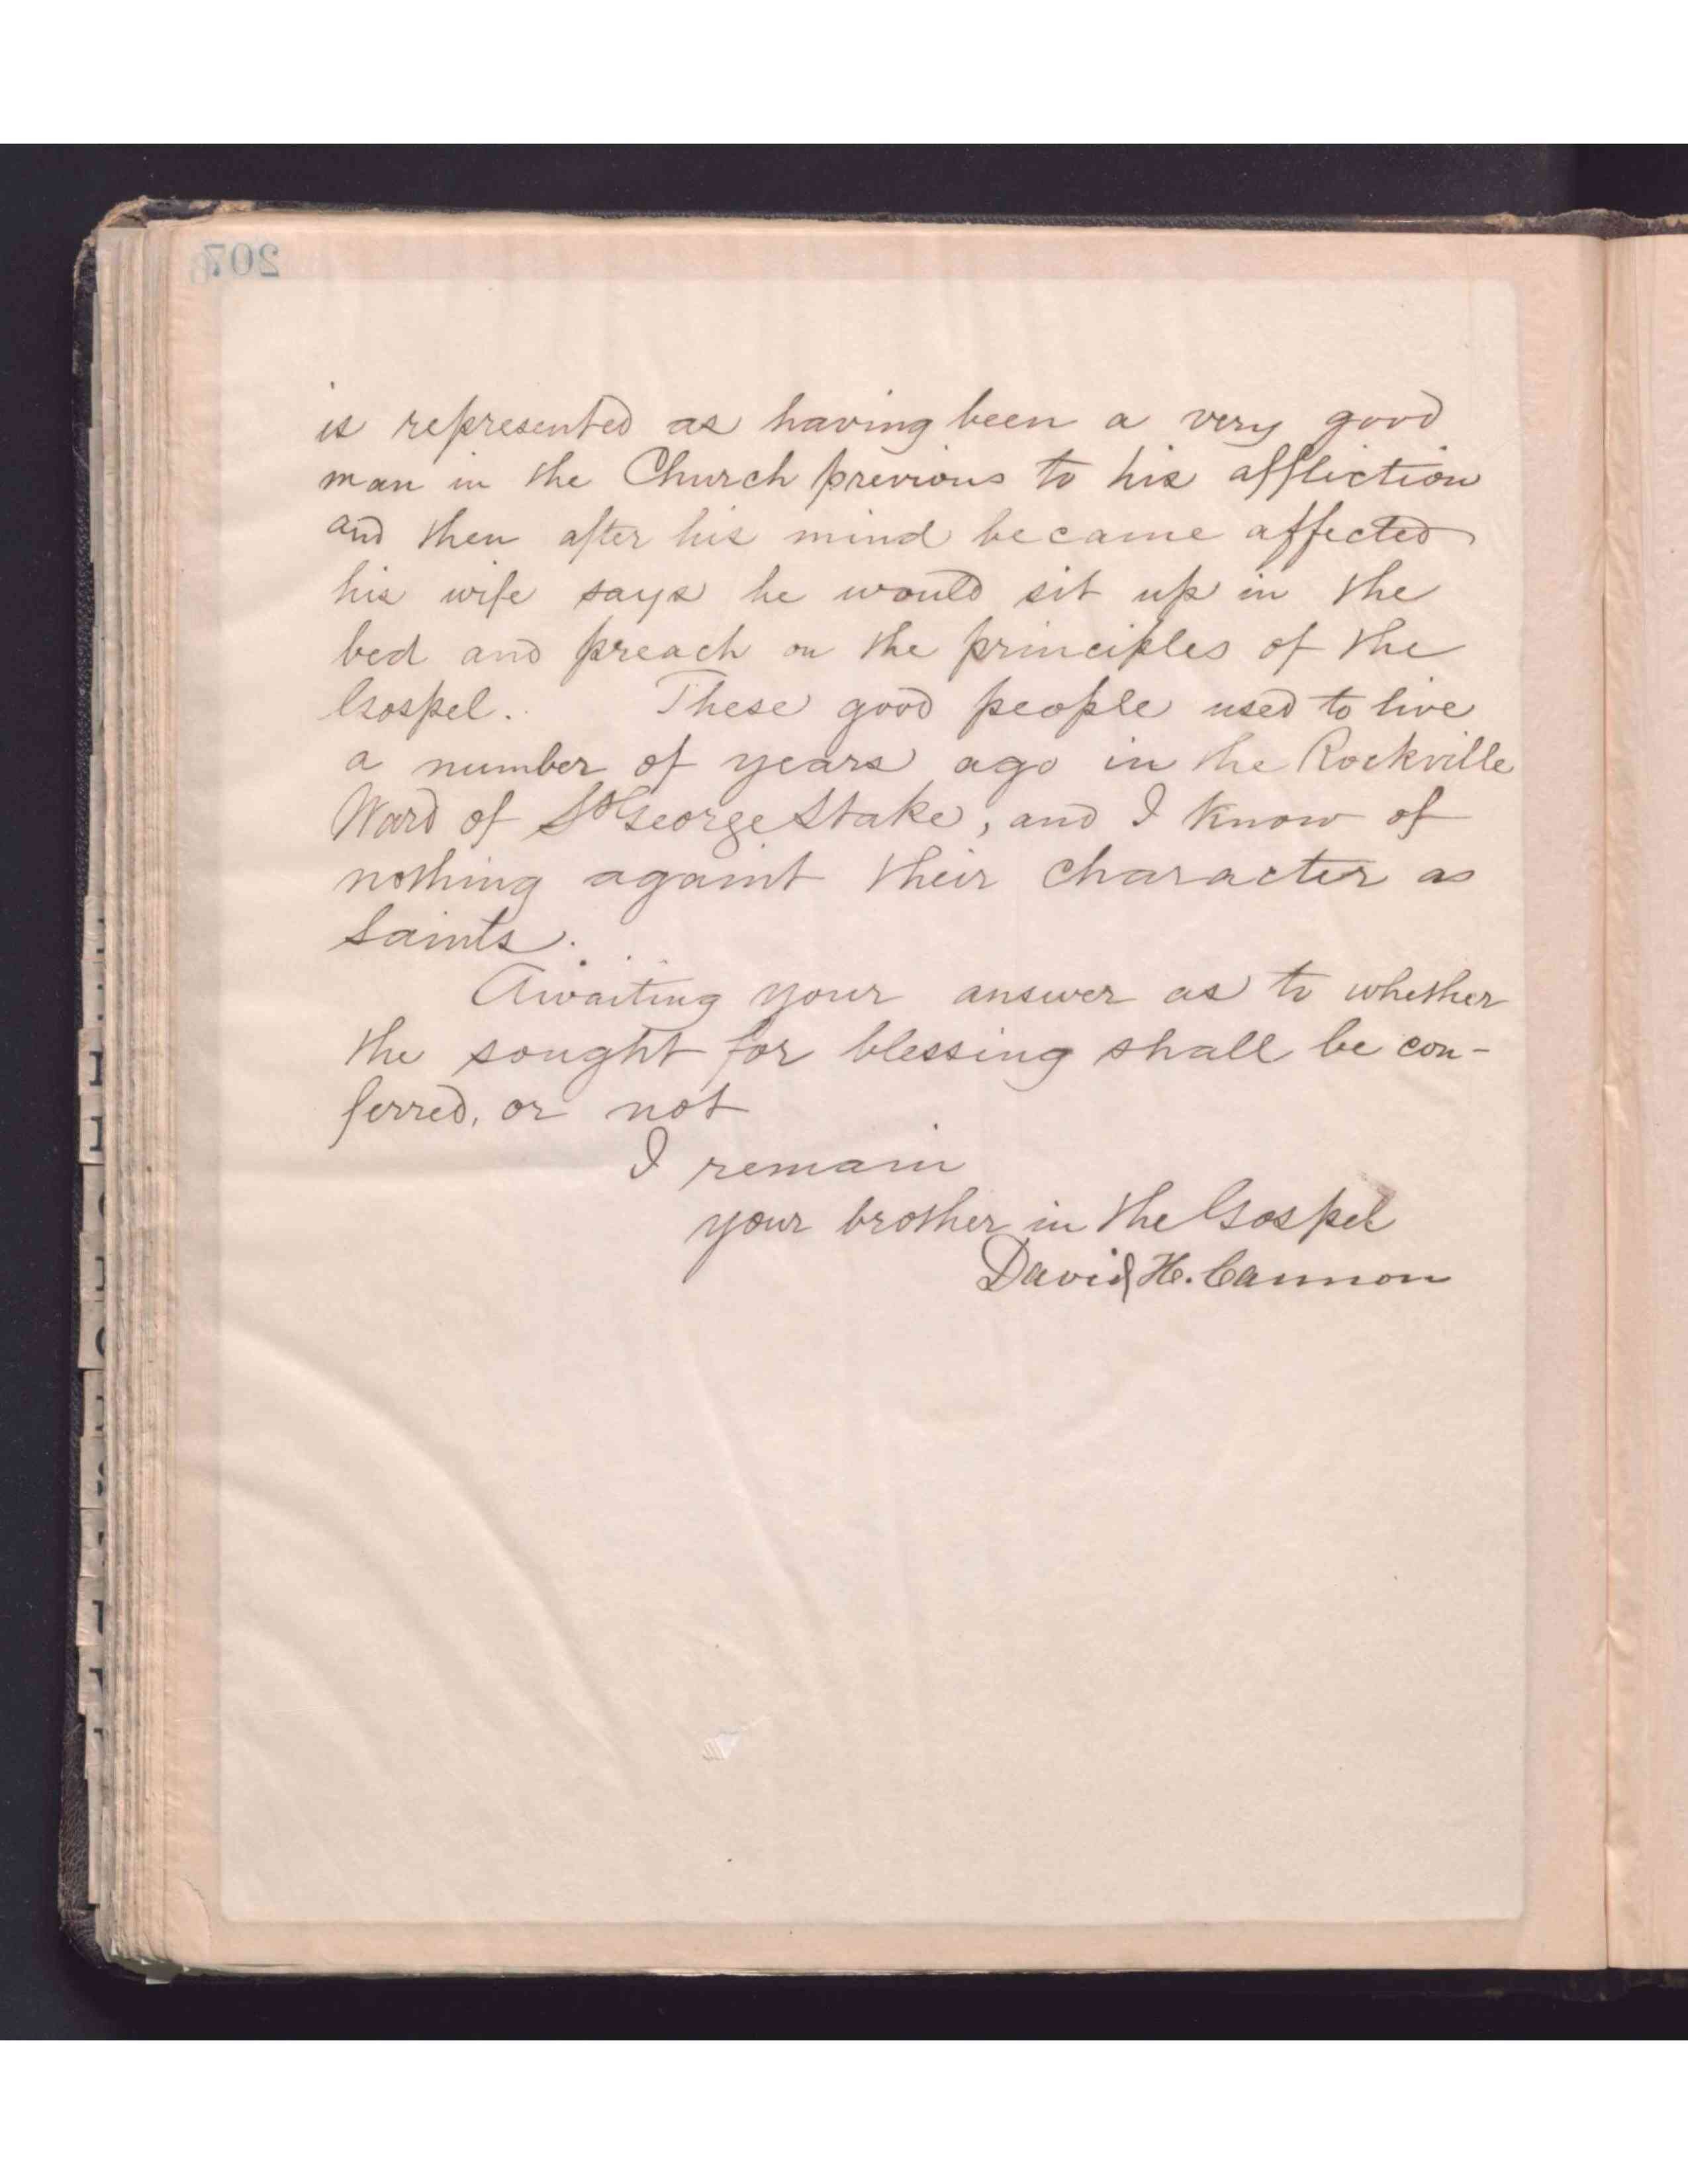 207
is represented as having been a very good
man in the Church previous to his affliction
and then after his mind became affected
his wife says he would sit up in the
bed and preach on the principles of the
Gospel. These good people used to live
a number of years ago in the Rockville
Ward of St George Stake, and I know of
nothing against their character as
saints.
Awaiting your answer as to whether
the sought for blessing shall be con-
ferred, or not
I remain
your brother in the Gospel
David H. Cannon